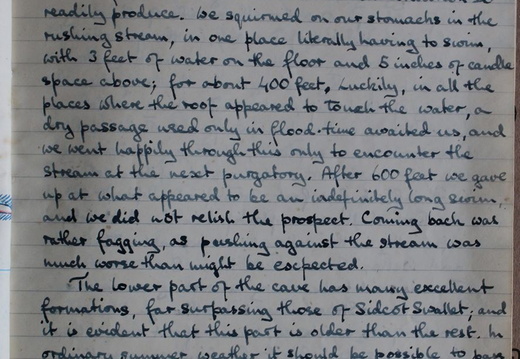 readily produce. We squirmed on our stomachs in the
rushing stream, in one place literally having to swim,
with 3 feet of water on the floor and 5 inches of candle
space above; for about 400 feet. Luckily, in all the
places where the roof appeared to touch the water, a
dry passage used only in flood-time awaited us, and
we went happily through this only to encounter the
stream at the next purgatory. After 600 feet we gave
up at what appeared to be an indefinitely long swim,
and we did not relish the prospect. Coming back was
rather fagging, as pushing against the stream was
much worse than might be escpected.
The lower part of the cave has many excellent
formations, far surpassing those of Sidcot Swallet; and
it is evident that this part is older than the rest. In
ordinary summer weather it should be possible to